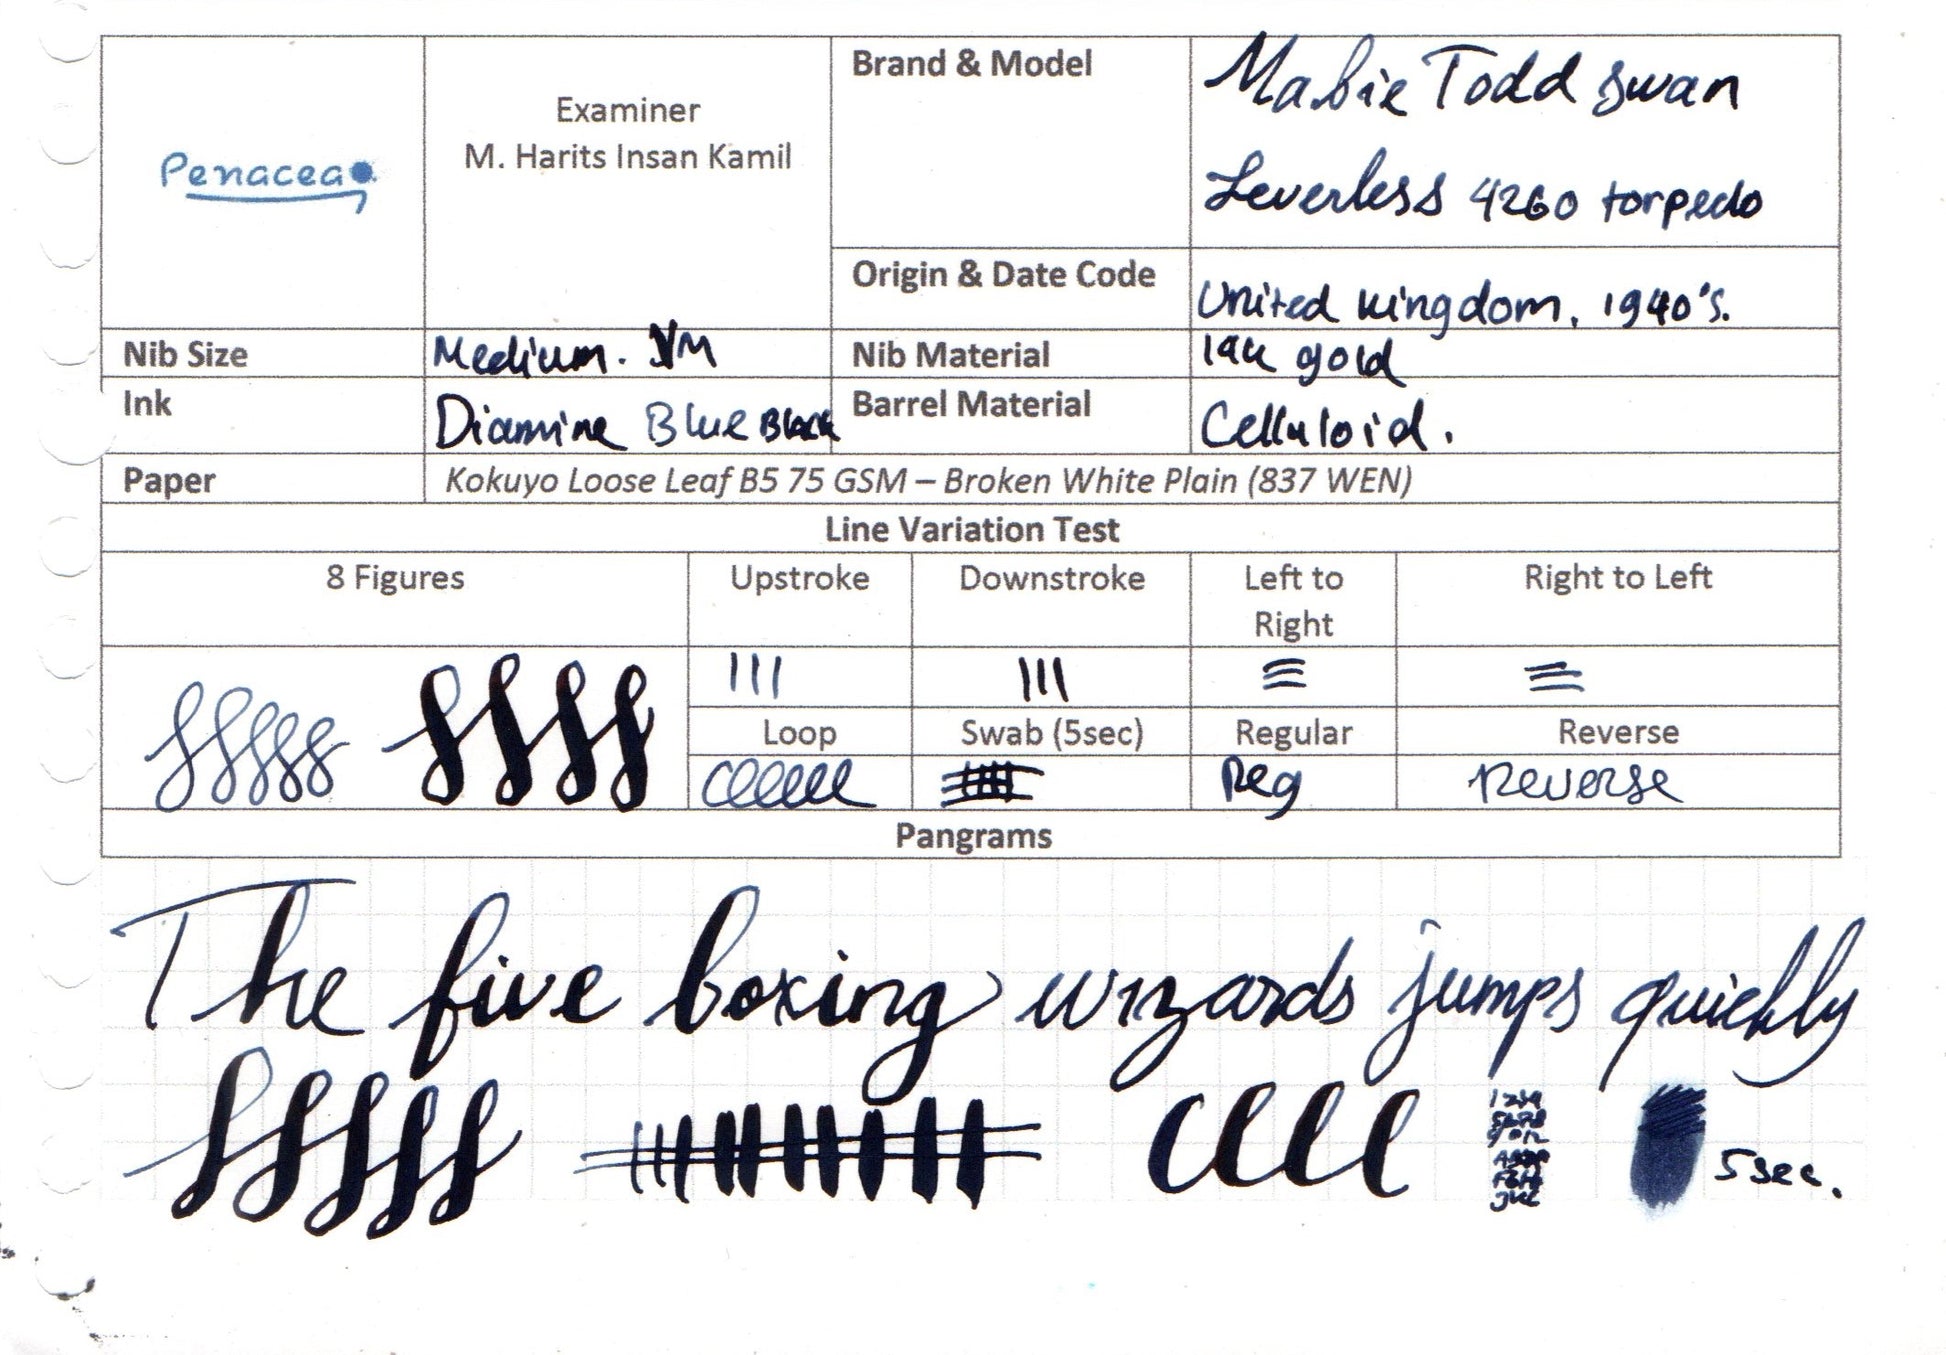 Penacea
Examiner
M. Harits Insan Kamil
Brand & Model
Mabie Todd Swan
Leverless 4260 torpedo
Origin & Date Code
United kingdom. 1940's.
Nib Size
Medium. M
Nib Material
14k gold
Ink
Diamine Blue Black
Barrel Material
Celluloid.
Paper
Kokuyo Loose Leaf B5 75 GSM – Broken White Plain (837 WEN)
Line Variation Test
8 Figures
Upstroke
Downstroke
Left to
Right
Right to Left
Loop
Swab (5sec)
Regular
Reverse
Reg
Reverse
Pangrams
The five boxing wizards jumps quickly
1234
5678
5sec.